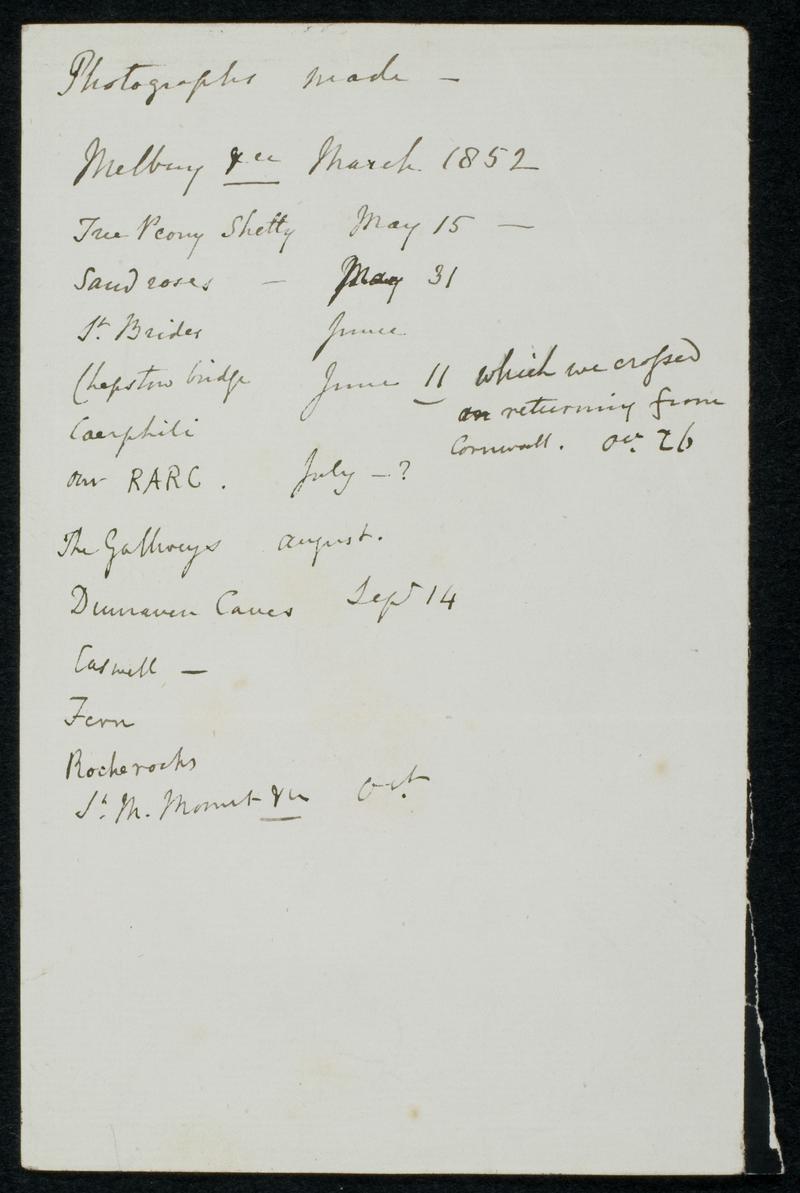 Photographs made –
Melbury &cc March 1852
Tree Peony Shetty May 15 –
Sand roses – May 31
St. Brides June
Chepstow bridge June 11 which we crossed
on returning from
Cornwall. Oct. 26
Caerphili
our RARC. July – ?
The Gallweys august.
Dunraven Caves Sept 14
Caswell –
Fern
Roche rocks
St. M. Mount &cc Oct.